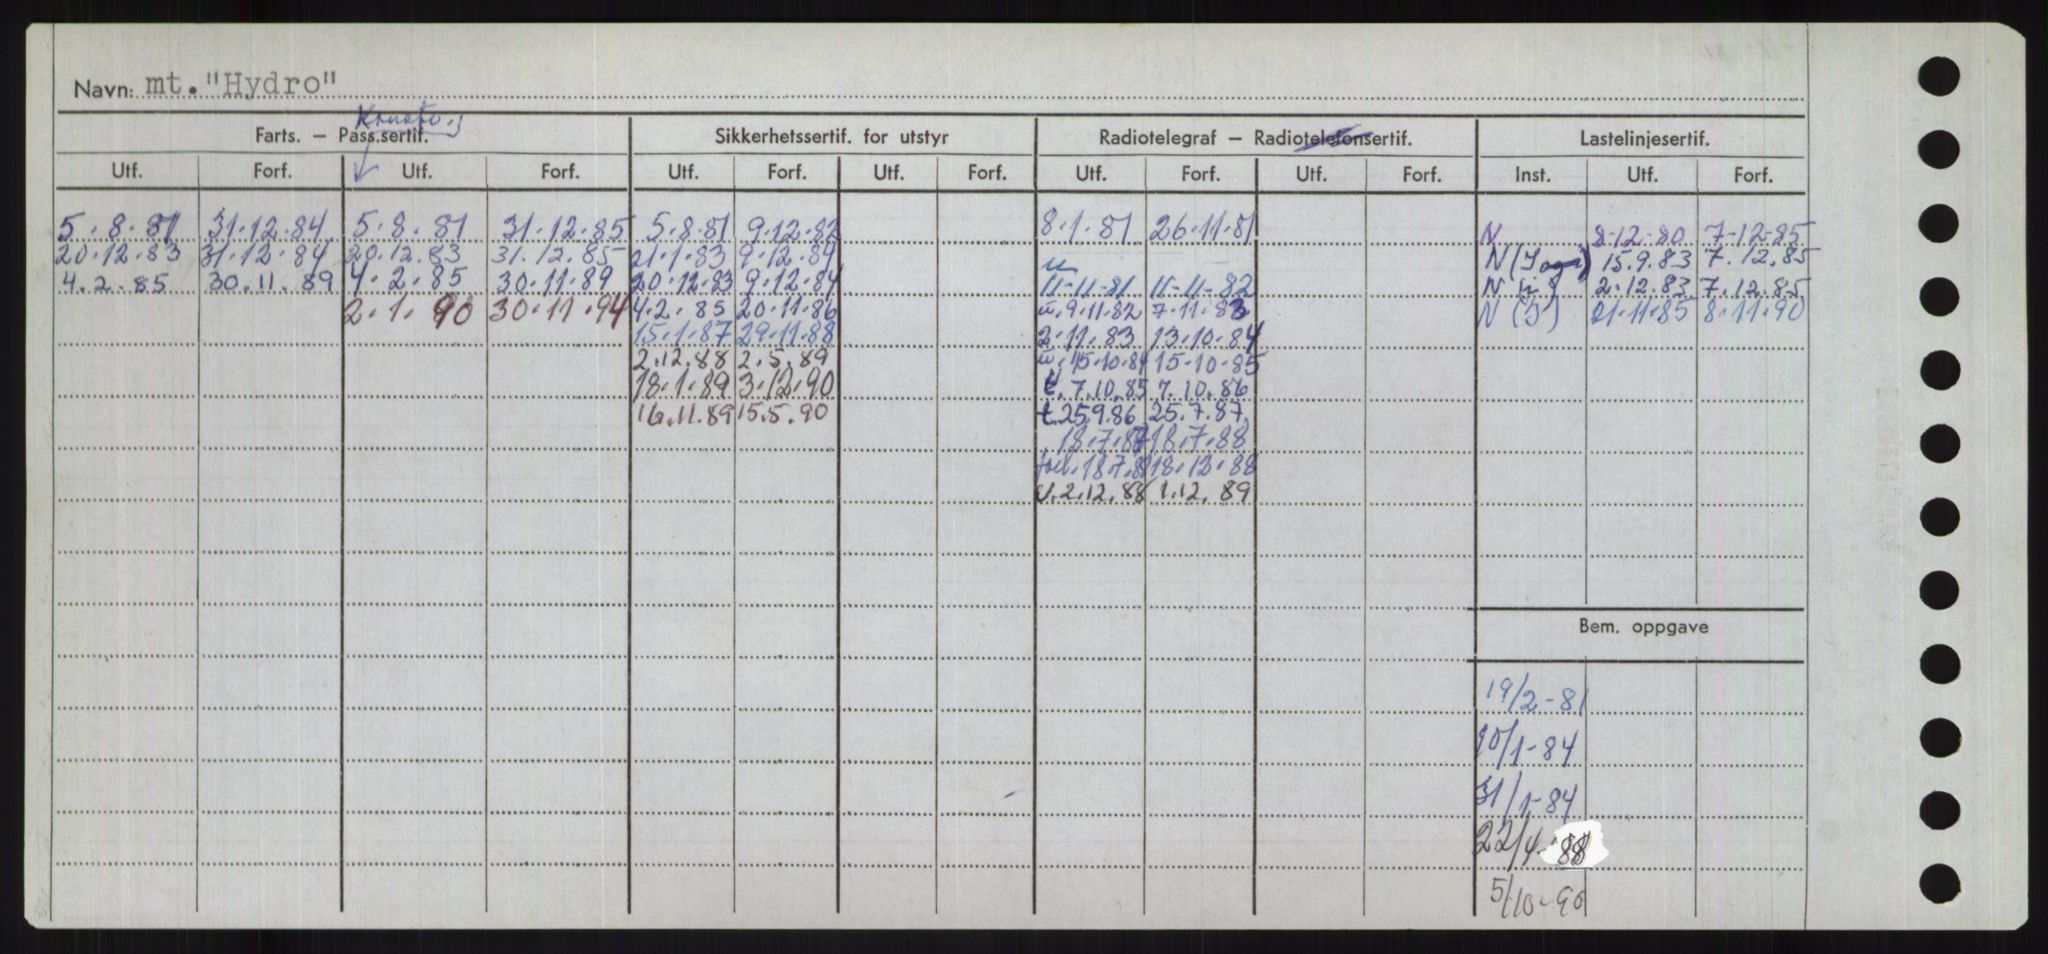 Navn: mt. "Hydro"
Farts. – Pass.sertif. Sikkerhetssertif. for utstyr Radiotelegraf – Radiotelefonsertif. Lastelinjesertif.
Utf. Forf. Utf. Forf. Utf. Forf. Utf. Forf. Utf. Forf. Utf. Forf. Inst. Utf. Forf.
5.8.81 31.12.84 5.8.81 31.12.85 5.8.81 9.12.82 8.1.81 26.11.81 N 8-12-80 7-12-85
20.12.83 31.12.84 20.12.83 31.12.85 21.1.83 9.12.84 u N 15.9.83 7.12.85
4.2.85 30.11.89 4.2.85 30.11.89 20.12.83 9.12.84 11-11-81 11-11-82 N 2.12.83 7.12.85
2.1.90 30.11.94 4.2.85 20.11.86 u.9.11.82 7.11.83 N (I) 21.11.85 8.11.90
15.1.87 29.11.88 2.11.83 13.10.84
2.12.88 2.5.89 u.15.10.84 15.10.85
18.1.89 3.12.90 t.7.10.85 7.10.86
16.11.89 15.5.90 t.25.9.86 25.7.87
18.7.87 18.7.88
18.7.87 18.12.88
2.12.88 1.12.89
Bem. oppgave
19/2-81
10/1-84
31/1-84
22/4-88
5/10-90